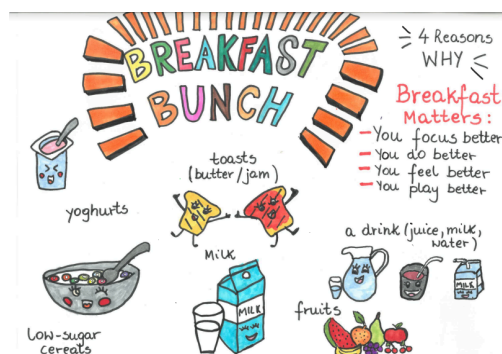 BREAKFAST
BUNCH
4 Reasons
WHY
Breakfast
Matters:
- You focus better
- You do better
- You feel better
- You play better
yoghurts
toasts
(butter/jam)
a drink (juice, milk,
water)
MiLK
MILK
MILK
fruits
low-sugar
cereals